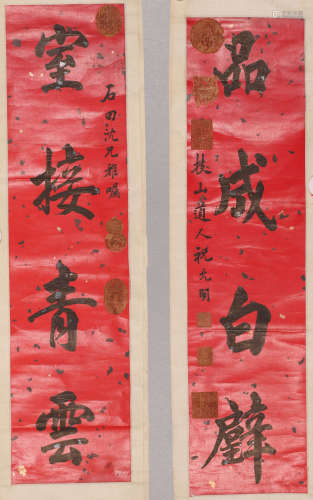 品成白璧
枝山道人祝允明
室接青雲
石田沈兄雅嘱